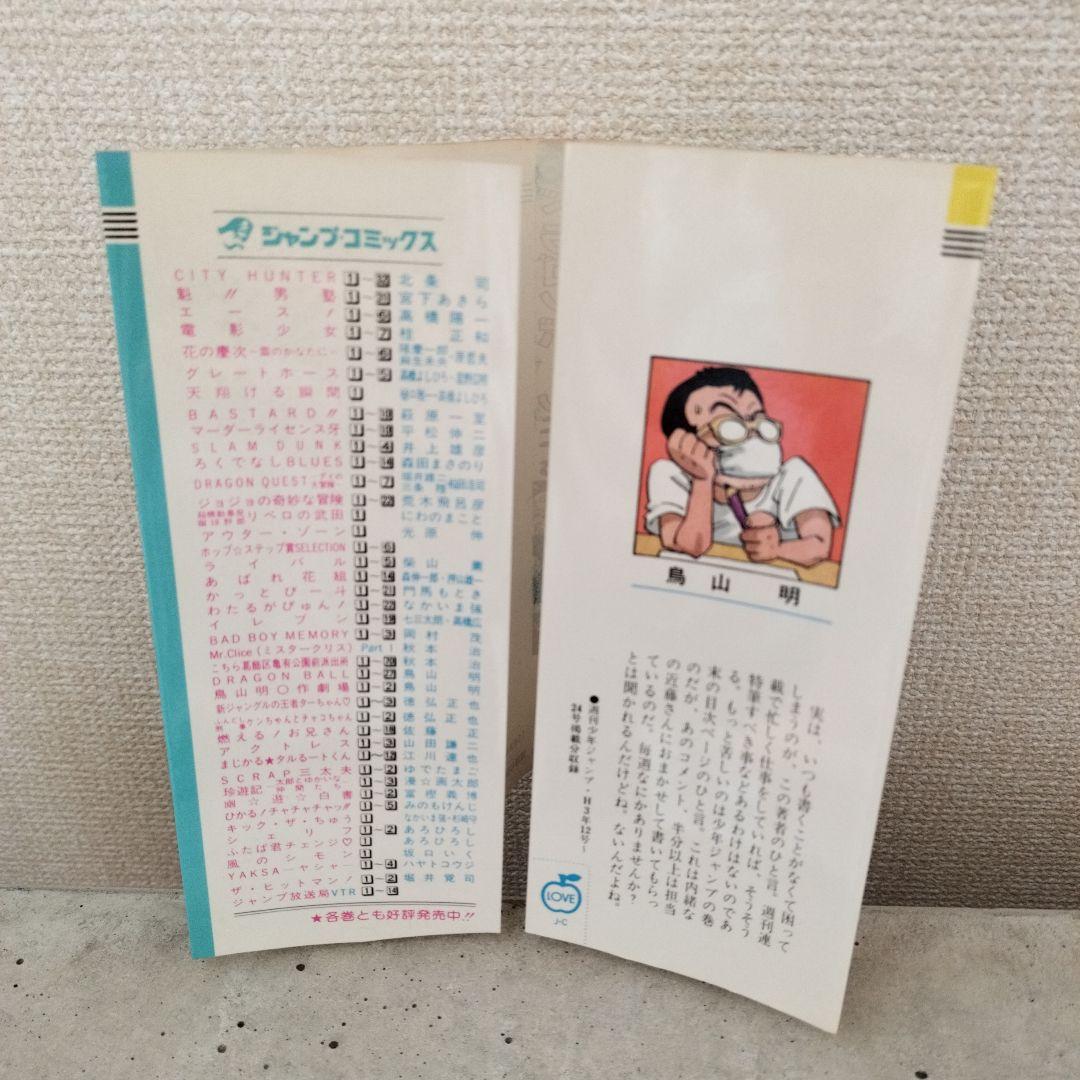 ジャンプ・コミックス
CITY HUNTER 1～ 北条司
魁!!男塾 1～ 宮下あきら
エース! 1～ 高橋陽一
電影少女 1～7 桂正和
花の慶次～雲のかなたに～ 1～ 隆慶一郎・原哲夫 麻生未央
グレートホース 1～ 高橋よしひろ・
天翔ける瞬間 1 ・高橋よしひろ
BASTARD!! 1～ 萩原一至
マーダーライセンス牙 1～ 平松伸二
SLAM DUNK 1～4 井上雄彦
ろくでなしBLUES 1～14 森田まさのり
DRAGON QUEST―ダイの大冒険― 1～7 堀井雄二・稲田浩司 三条陸
ジョジョの奇妙な冒険 1～ 荒木飛呂彦
リベロの武田 1 にわのまこと
アウター・ゾーン 1 光原伸
ホップ☆ステップ賞SELECTION 1～
ライバル 1～ 柴山薫
あばれ花組 1～ 押山雄一
かっとび一斗 1～ 門馬もとき
わたるがぴゅん! 1～ なかいま強
イレブン 1～ 七三太朗・高橋広
BAD BOY MEMORY 1～ 岡村茂
Mr.Clice(ミスタークリス) Part 1 秋本治
こちら葛飾区亀有公園前派出所 1～ 秋本治
DRAGON BALL 1～27 鳥山明
鳥山明○作劇場 1～2 鳥山明
新ジャングルの王者ターちゃん♡ 1～ 徳弘正也
ふんどし刑事ケンちゃんとチャコちゃん 1～2 徳弘正也
燃える!お兄さん 1～ 佐藤正
アクトレス 1～ 山田謙二
まじかる★タルるートくん 1～ 江川達也
SCRAP三太夫 1～2 ゆでたまご
珍遊記―太郎とゆかいな仲間たち― 1～ 漫☆画太郎
幽☆遊☆白書 1～2 冨樫義博
ひかる!チャチャチャッ!! 1～5 みのもけんじ
キック・ザ・ちゅう 1 なかいま強・杉崎守
シェリフ 1～2 あろひろし
ふたば君チェンジ♡ 1 あろひろし
風のシモン 1 坂口いく
YAKSA―ヤシャ― 1～4 ハヤトコウジ
ザ・ヒットマン! 1～2 堀井覚司
ジャンプ放送局VTR 1～14
★各巻とも好評発売中!!
鳥山明
実は、いつも書くことがなくて困って
しまうのが、この著者のひと言。週刊連
載で忙しく仕事をしていれば、そうそう
特筆すべき事などあるわけはないのであ
る。もっと苦しいのは少年ジャンプの巻
末の目次ページのひと言。これは内緒な
のだが、あのコメント、半分以上は担当
の近藤さんにおまかせして書いてもらっ
ているのだ。毎週なにかありませんか?
とは聞かれるんだけどね。ないんだよね。
●週刊少年ジャンプ・H3年12号～
24号掲載分収録
LOVE
J-C